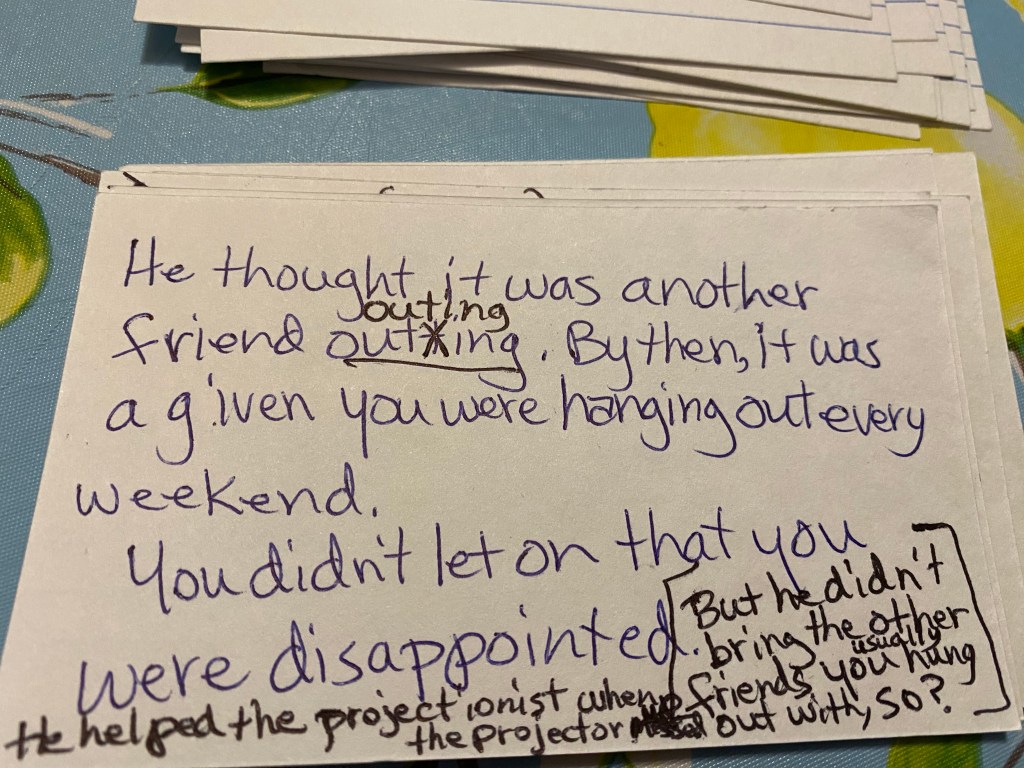 He thought it was another
outing
friend outing. By then, it was
a given you were hanging out every
weekend.
You didn't let on that you
were disappointed.
[But he didn't
bring the other
usually
friends you hung
out with, so?]
He helped the projectionist when
the projector